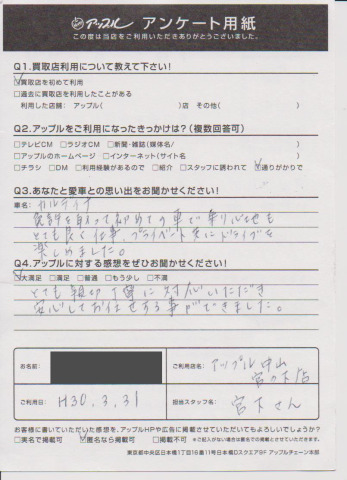 アップル アンケート用紙
この度は当店をご利用いただきありがとうございました。
Q1.買取店利用について教えて下さい!
☑買取店を初めて利用
□過去に買取店を利用したことがある
利用した店舗: アップル( )店 その他( )
Q2.アップルをご利用になったきっかけは?(複数回答可)
□テレビCM □ラジオCM □新聞・雑誌(媒体名/ )
□アップルのホームページ □インターネット(サイト名 )
□チラシ □DM □利用経験があるので □紹介 □スタッフに誘われて ☑通りがかりで
Q3.あなたと愛車との思い出をお聞かせください!
車名: カルディナ
免許を取って初めての車で乗り心地も
とても良く仕事、プライベート共にドライブを
楽しめました。
Q4.アップルに対する感想をぜひお聞かせください!
☑大満足 □満足 □普通 □もう少し □不満
とても親切丁寧に対応いただき
安心してお任せする事ができました。
お名前:
ご利用店名: アップル中山
宮の下店
ご利用日: H30.3.31
担当スタッフ名: 宮下さん
お客様に書いていただいた感想を、アップルHPや広告に掲載させていただいてもよろしいでしょうか?
□実名で掲載可 ☑匿名なら掲載可 □掲載不可 ※ご記入がない場合は匿名での掲載とさせていただきます。
東京都中央区日本橋1丁目16番11号日本橋DスクエアSF アップルチェーン本部